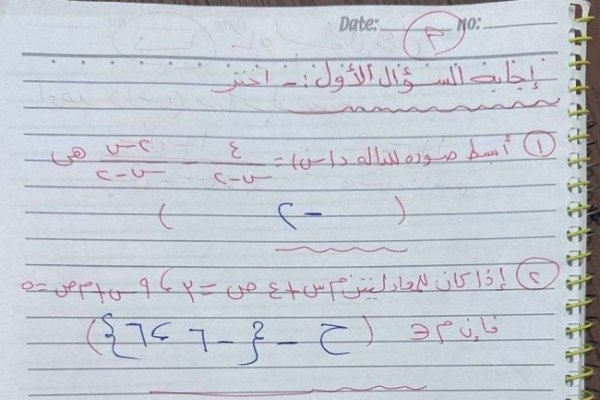 Date: ٣ no:
إجابة السؤال الأول :- اختر
١ أبسط صورة للدالة د(س) = ٤/س-٢ - ٢س/س-٢ هى
( -٢ )
٢ إذا كان للمعادلتين م س + ٤ ص = ٢ ، ٩ س + م ص = ٥
فإن م ∈ ( ح - {-٦ ، ٦} )